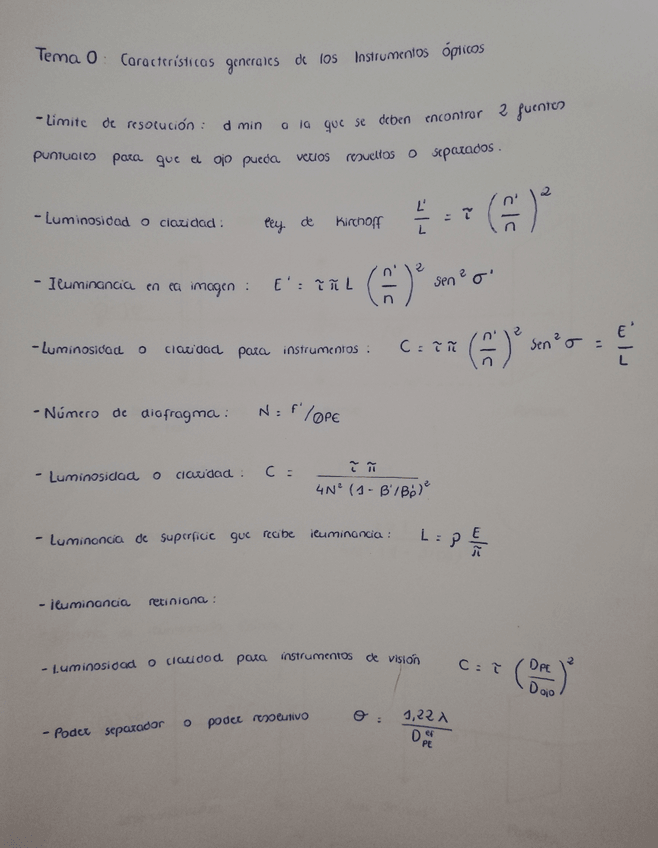 Tema 0: Características generales de los Instrumentos ópticos
- Límite de resolución: d min a la que se deben encontrar 2 fuentes
puntuales para que el ojo pueda verlos resueltos o separados.
- Luminosidad o claridad: ley de Kirchoff L'/L = τ (n'/n)²
- Iluminancia en la imagen: E' = τ π L (n'/n)² sen² σ'
- Luminosidad o claridad para instrumentos: C = τ π (n'/n)² sen² σ = E'/L
- Número de diafragma: N = f'/ØPE
- Luminosidad o claridad: C = τ π / 4N² (1 - β'/β'p)²
- Luminancia de superficie que recibe iluminancia: L = ρ E/π
- Iluminancia retiniana:
- Luminosidad o claridad para instrumentos de visión C = τ (D_PE/D_ojo)²
- Poder separador o poder resolutivo θ = 1,22 λ / D_PE^ef